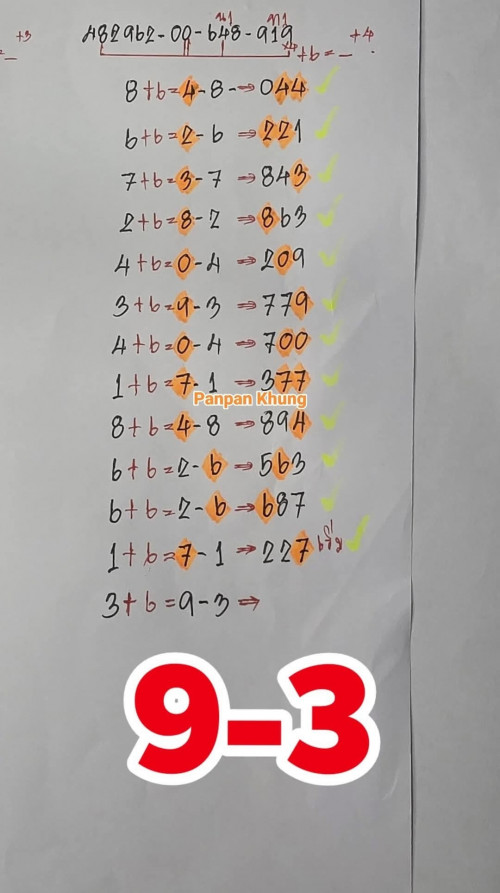 +3 +4
482962-00-648-919
+6=_
8+6=4-8-⇒044
6+6=2-6 ⇒221
7+6=3-7 ⇒843
2+6=8-2 ⇒863
4+6=0-4 ⇒209
3+6=9-3 ⇒779
4+6=0-4 ⇒700
1+6=7-1 ⇒377
Panpan Khung
8+6=4-8 ⇒894
6+6=2-6 ⇒563
6+6=2-6 ⇒687
1+6=7-1 ⇒227
3+6=9-3 ⇒
9-3